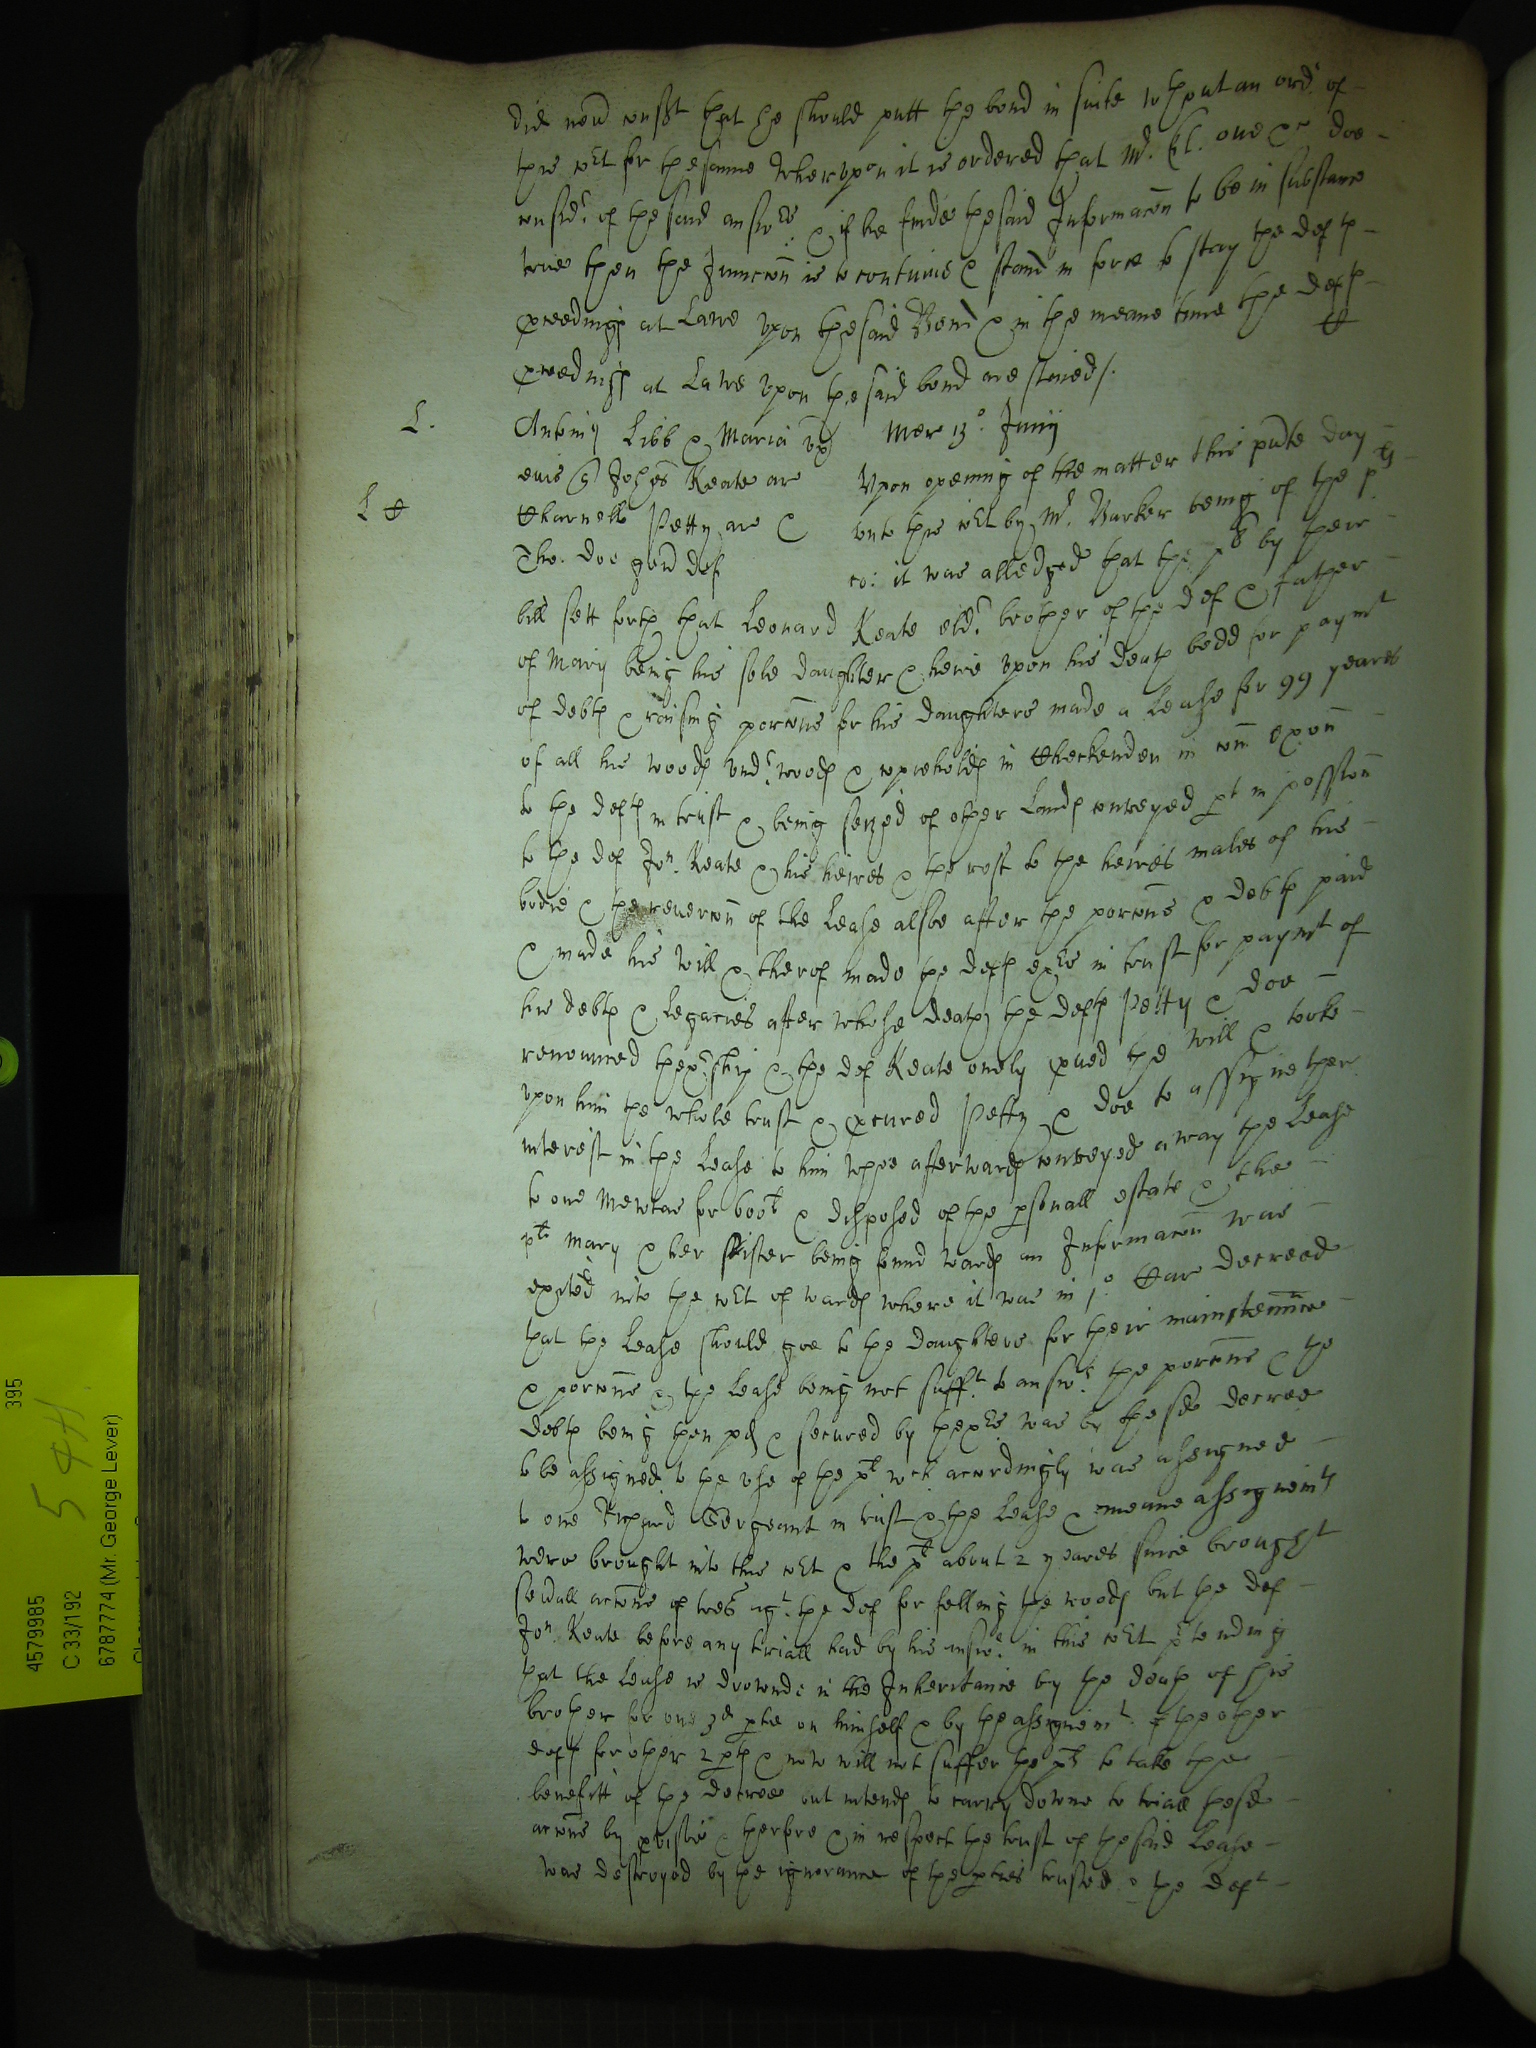 did never consent that he should putt the bond in suite without an ordr. of
this cort for the same Wherupon it is ordered that Mr. doe
considr. of the said answere & if he finde the said Informacōn to be in substance
true then the Iniuncōn is to continue & stand in force to stay the deftꝭ
ꝓceedingꝭ at Lawe vpon the said Bond & in the meane time the deftꝭ
ꝓceedingꝭ at Lawe vpon the said bond are staied/.
L. Antoniꝰ Libb & Maria vx̄ Mer 13° Junij
eius q Johes Keate ar Vpon opening of the matter this pñte day
L Wharnell Petty ar & vnto this cort by Mr. Barker being of the pltꝭ
Tho. Doe gen def co: it was alledged that the pltꝭ by their
bill sett forth that Leonard Keate eldr. brother of the def & father
of Mary being his sole daughter & heire vpon his death bedd for paymt
of debtꝭ & raising porcōns for his daughters made a lease for 99 yeares
of all his woodꝭ vndr.woodꝭ & copieholdꝭ in Checkenden in com̄ Oxon
to the deftꝭ in trust & being seized of other Landꝭ conveyed pt in possession
to the def Jon. Keate & his heires & the rest to the heires males of his
bodie & the revercōn of the Lease alsoe after the porcōns & debtꝭ paid
& made his Will & therof made the deftꝭ exrs in trust for paymt of
his debtꝭ & Legacies after whose death the deftꝭ Petty & Doe
renounced thexr.ship & the def Keate onely ꝓued the Will & tooke
vpon him the whole trust & ꝓcured Petty & Doe to assigne ther
interest in the Lease to him whoe afterwardꝭ conveyed away the Lease
to one Mewtas for 600l & disposed of the ꝑsonall estate & the
plt Mary & her sister being found wardꝭ an Informacōn was
exhited into the cort of wardꝭ where it was in 1° Car decreed
that the Lease should goe to the daughters for their maintennce
& porcōns & the Lease being not sufft. to answr. the porcōns & the
debtꝭ being then pd & secured by thexrs was by the sd decree
to be assigned to the vse of the plt wch accordingly was assigned
to one Richard Sergeant in trust & the Lease & meane assignemtꝭ
were brought into this cort & the plt about 2 yeares since brought
seuall accōns of tres agt. the def for felling the woodꝭ but the def
Jon. Keate before any triall had by his answr. in this cort ꝑtending
that the Lease is drownd in the Inheritance by the death of his
brother for one 3d ꝑte on himself & by the assignemt. of the other
deftꝭ for other 2 ꝑtꝭ & now will not suffer the pltꝭ to take the
benefitt of the decree but intendꝭ to carry downe to triall these
accōns by ꝓviso & therfore & in respect the trust of the said Lease
was destroyed by the ignorance of the ꝑties trusted & the deft
395
4579985
C 33/192
6787774 (Mr. George Lever)